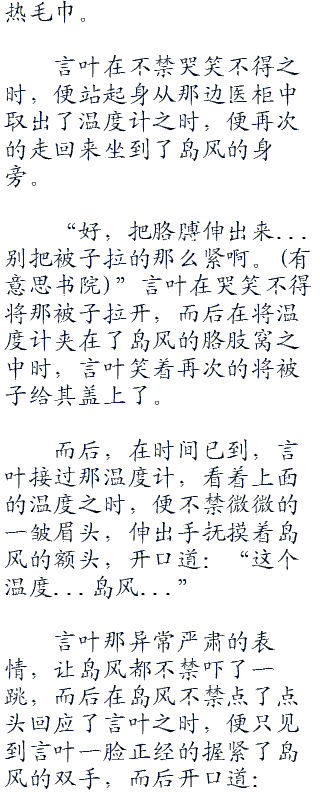 热毛巾。
言叶在不禁哭笑不得之
时，便站起身从那边医柜中
取出了温度计之时，便再次
的走回来坐到了岛风的身
旁。
“好，把胳膊伸出来...
别把被子拉的那么紧啊。(有
意思书院)”言叶在哭笑不得
将那被子拉开，而后在将温
度计夹在了岛风的胳肢窝之
中时，言叶笑着再次的将被
子给其盖上了。
而后，在时间已到，言
叶接过那温度计，看着上面
的温度之时，便不禁微微的
一皱眉头，伸出手抚摸着岛
风的额头，开口道：“这个
温度...岛风...”
言叶那异常严肃的表
情，让岛风都不禁吓了一
跳，而后在岛风不禁点了点
头回应了言叶之时，便只见
到言叶一脸正经的握紧了岛
风的双手，而后开口道：